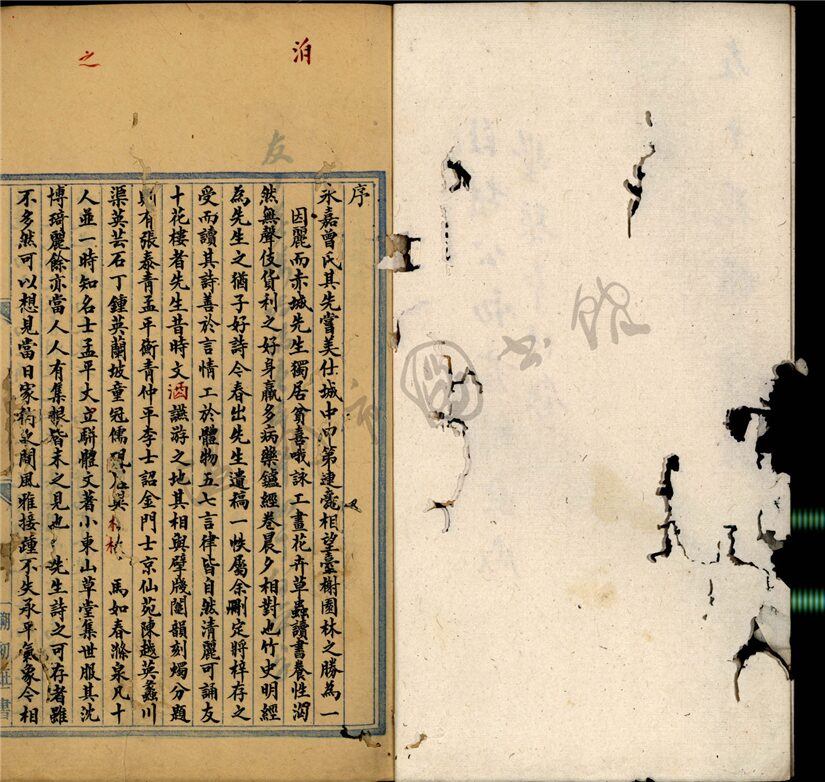 泊
之
序
永嘉曾氏其先嘗美仕城中甲第連甍相望臺榭園林之勝為一
因麗而赤城先生獨居貧喜哦詠工畫花卉草蟲讀書養性
然無聲伎貨利之好身羸多病藥鑪經卷晨夕相對也竹史明經
為先生之猶子好詩令春出先生遺稿一帙屬余刪定將梓存之
受而讀其詩善於言情工於體物五七言律皆自然清麗可誦友
十花樓者先生昔時文酒讌游之地其相與擘牋鬮韻刻燭分題
則有張泰青孟平衡青仲平李士詔金門士京仙苑陳越英蠡川
渠英芸石丁鍾英蘭坡童冠儒硯吳馬如春滌泉凡十
人並一時知名士孟平大立駢體文著小東山草堂集世服其沈
博琦麗餘亦當人人有集皆未之見也先生詩之可存者雖
不多然可以想見當日家之間風雅接踵不失承平氣象令相